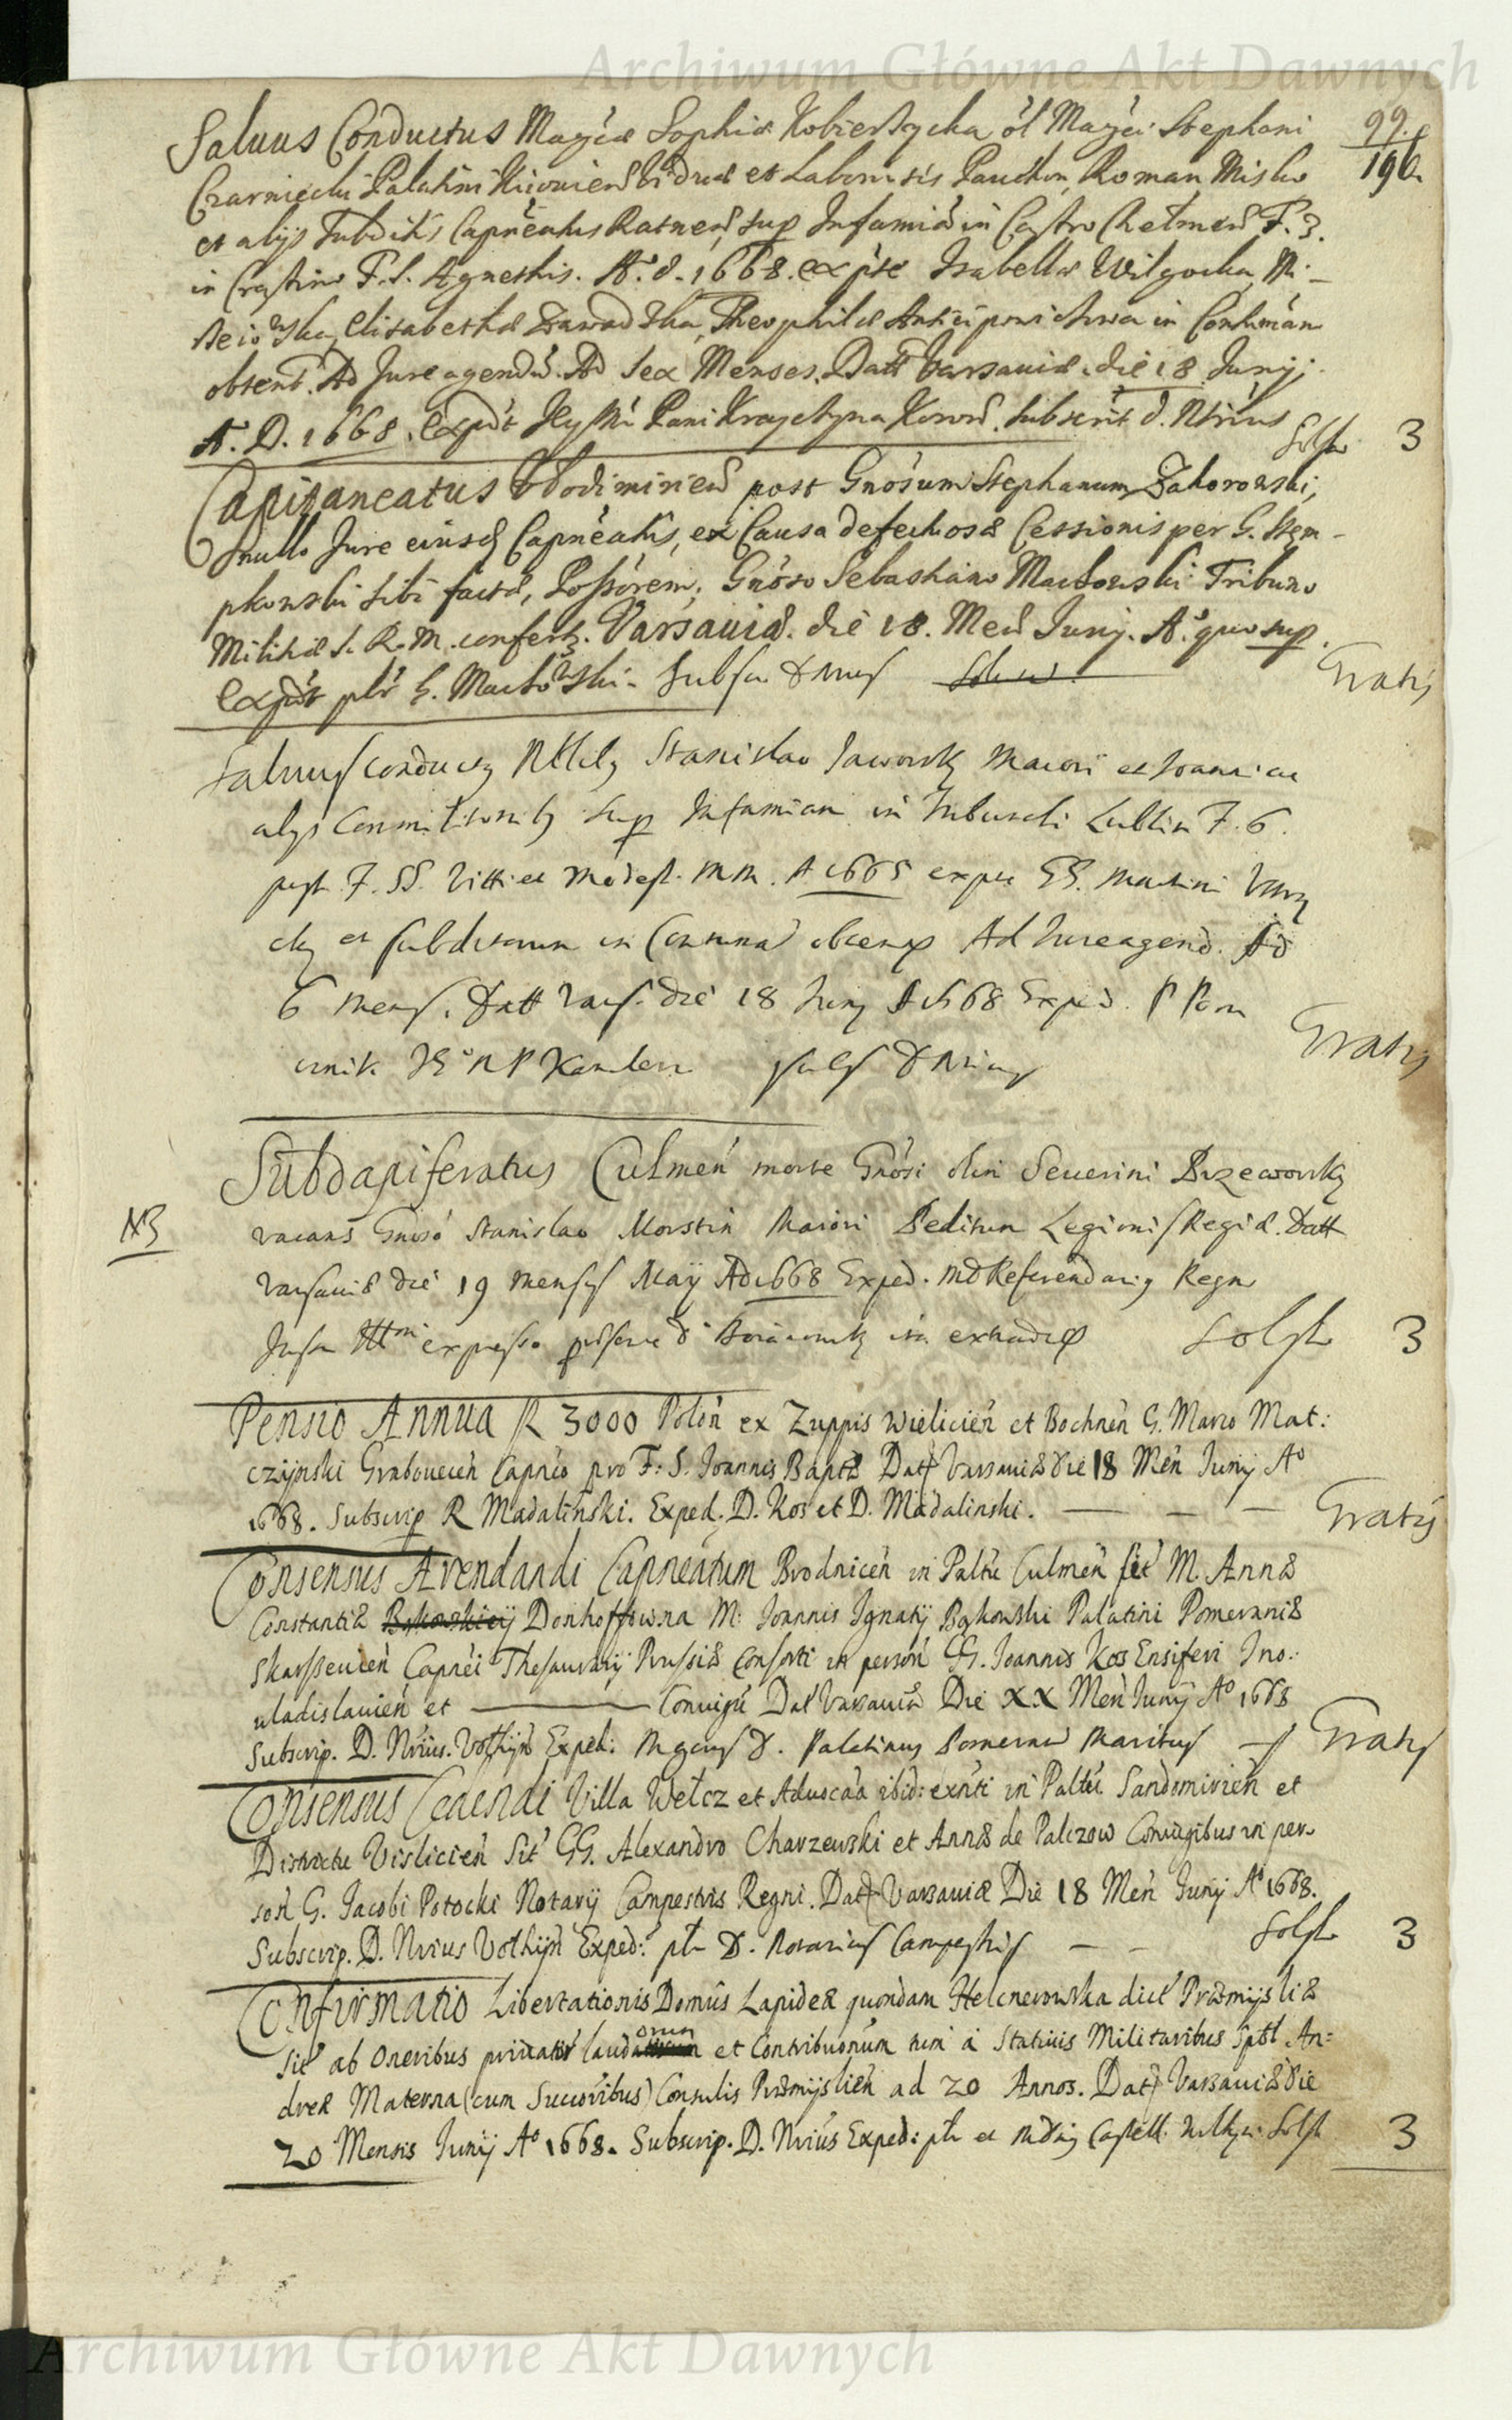 Archiwum Główne Akt Dawnych
99.
196.
Saluus Conductus Magcæ Sophiæ Kobierzycka ol Magci Stephani
Czarniecki Palatini Kiiouien Viduæ et Laboriosis Roman Misko
et alijs Subditis Capneatus Ratnen, sup Infamiã in Castro Chelmen F. 3.
in Crastino F. S. Agnethis. A. d. 1668. ex pte Isabellæ Wilgocka, 
Elisabethæ Zawadzka, Theophilæ in Contumán
obtent. Ad Jure agendũ. Ad Sex Menses. Datt Varsauiæ. die 18 Junij.
A. D. 1668. Expdt Pani Krayczyna Koron. Subscrit d. Ntrius Solt 3
Capitaneatus Vlodimirien post Gnosum Stephanum Zahorowski,
nullo Jure eiusd Capneatus, ex Causa defectuosæ Cessionis per G. Stem-
pkowski sibi factæ, Possorem; Gnoso Sebastiano Machowski Tribuno
Militiæ S. R. M. confert. Varsauiæ. die 18. Men Junij. A. quo sup.
Expdt G. Machowski. Subscr D Nrius Gratis
Saluus conductus Nbilib Stanislao Jaworsky Maiori et Joanni ac
alijs Commilitonib sup Infamiam in Lublin F. 6.
post F. SS. Viti et Modest. M.M. A 1665 ex pte GG. Martini
et subditorum in Contuma obtent Ad Jure agend. Ad
6 Mens. Datt Vars. die 18 Juny A 1668 Exped. P
Subs D Nrius Gratis
NB
Subdapiferatus Culmen morte Gnosi olim Seuerini
vacans Gnoso Stanislao Morstin Maiori Peditum Legionis Regiæ. Datt
Varsauiæ die 19 Mensis Maij AD 1668 Exped. MD Referendarius Regni
Jussu expresso extradit Solt 3
Pensio Annua R 3000 Polon ex Zuppis Wielicien et Bochnen G. Marco Mat:
czijnski Grabouecen Capneo pro F: S. Joannis Bapte Datt Varsauiæ die 18 Men Junij Ao
1668. Subscrip R Madalinski. Exped. D. Kos et D. Madalinski. — — — Gratis
Consensus Arendandi Capneatum Brodnicen in Paltu Culmen sit M. Annæ
Constantiæ Donhoffowna M: Joannis Ignatij Bąkowski Palatini Pomeraniæ
Skarsseuien Capnei Thesaurarij Prussiæ Consorti in person GG. Joannis Kos Ensiferi Ino:
uladislauien et ——— Coniugũ Dat Varsauiæ Die XX Men Junij Ao 1668
Subscrip. D. Nrius. Volhijn Exped: Mgcus D. Palatinus Pomeran Maritus — Gratis
Consensus Cedendi Villa Wełcz et Aduocaa ibid: exnti in Paltu Sandomirien et
Districtu Vislicien Sit GG. Alexandro Charzewski et Annæ de Palczow Coniugibus in per-
son G. Jacobi Potocki Notarij Campestris Regni. Datt Varsauiæ Die 18 Men Junij Ao 1668.
Subscrip. D. Nrius Volhijn Exped: D. Notarius Campestris — — Solt 3
Confirmatio Libertationis Domus Lapideæ quondam Helcnerowska dict Præmijsliæ
Sit ab Oneribus priuator laudorum et Contribuonum tum a Statiuis Militaribus Sptl An=
dreæ Materna (cum Succoribus) Consulis Præmijslien ad 20 Annos. Datt Varsauiæ die
20 Mensis Junij Ao 1668. Subscrip. D. Nrius Exped: et Castell. Solt 3
Archiwum Główne Akt Dawnych